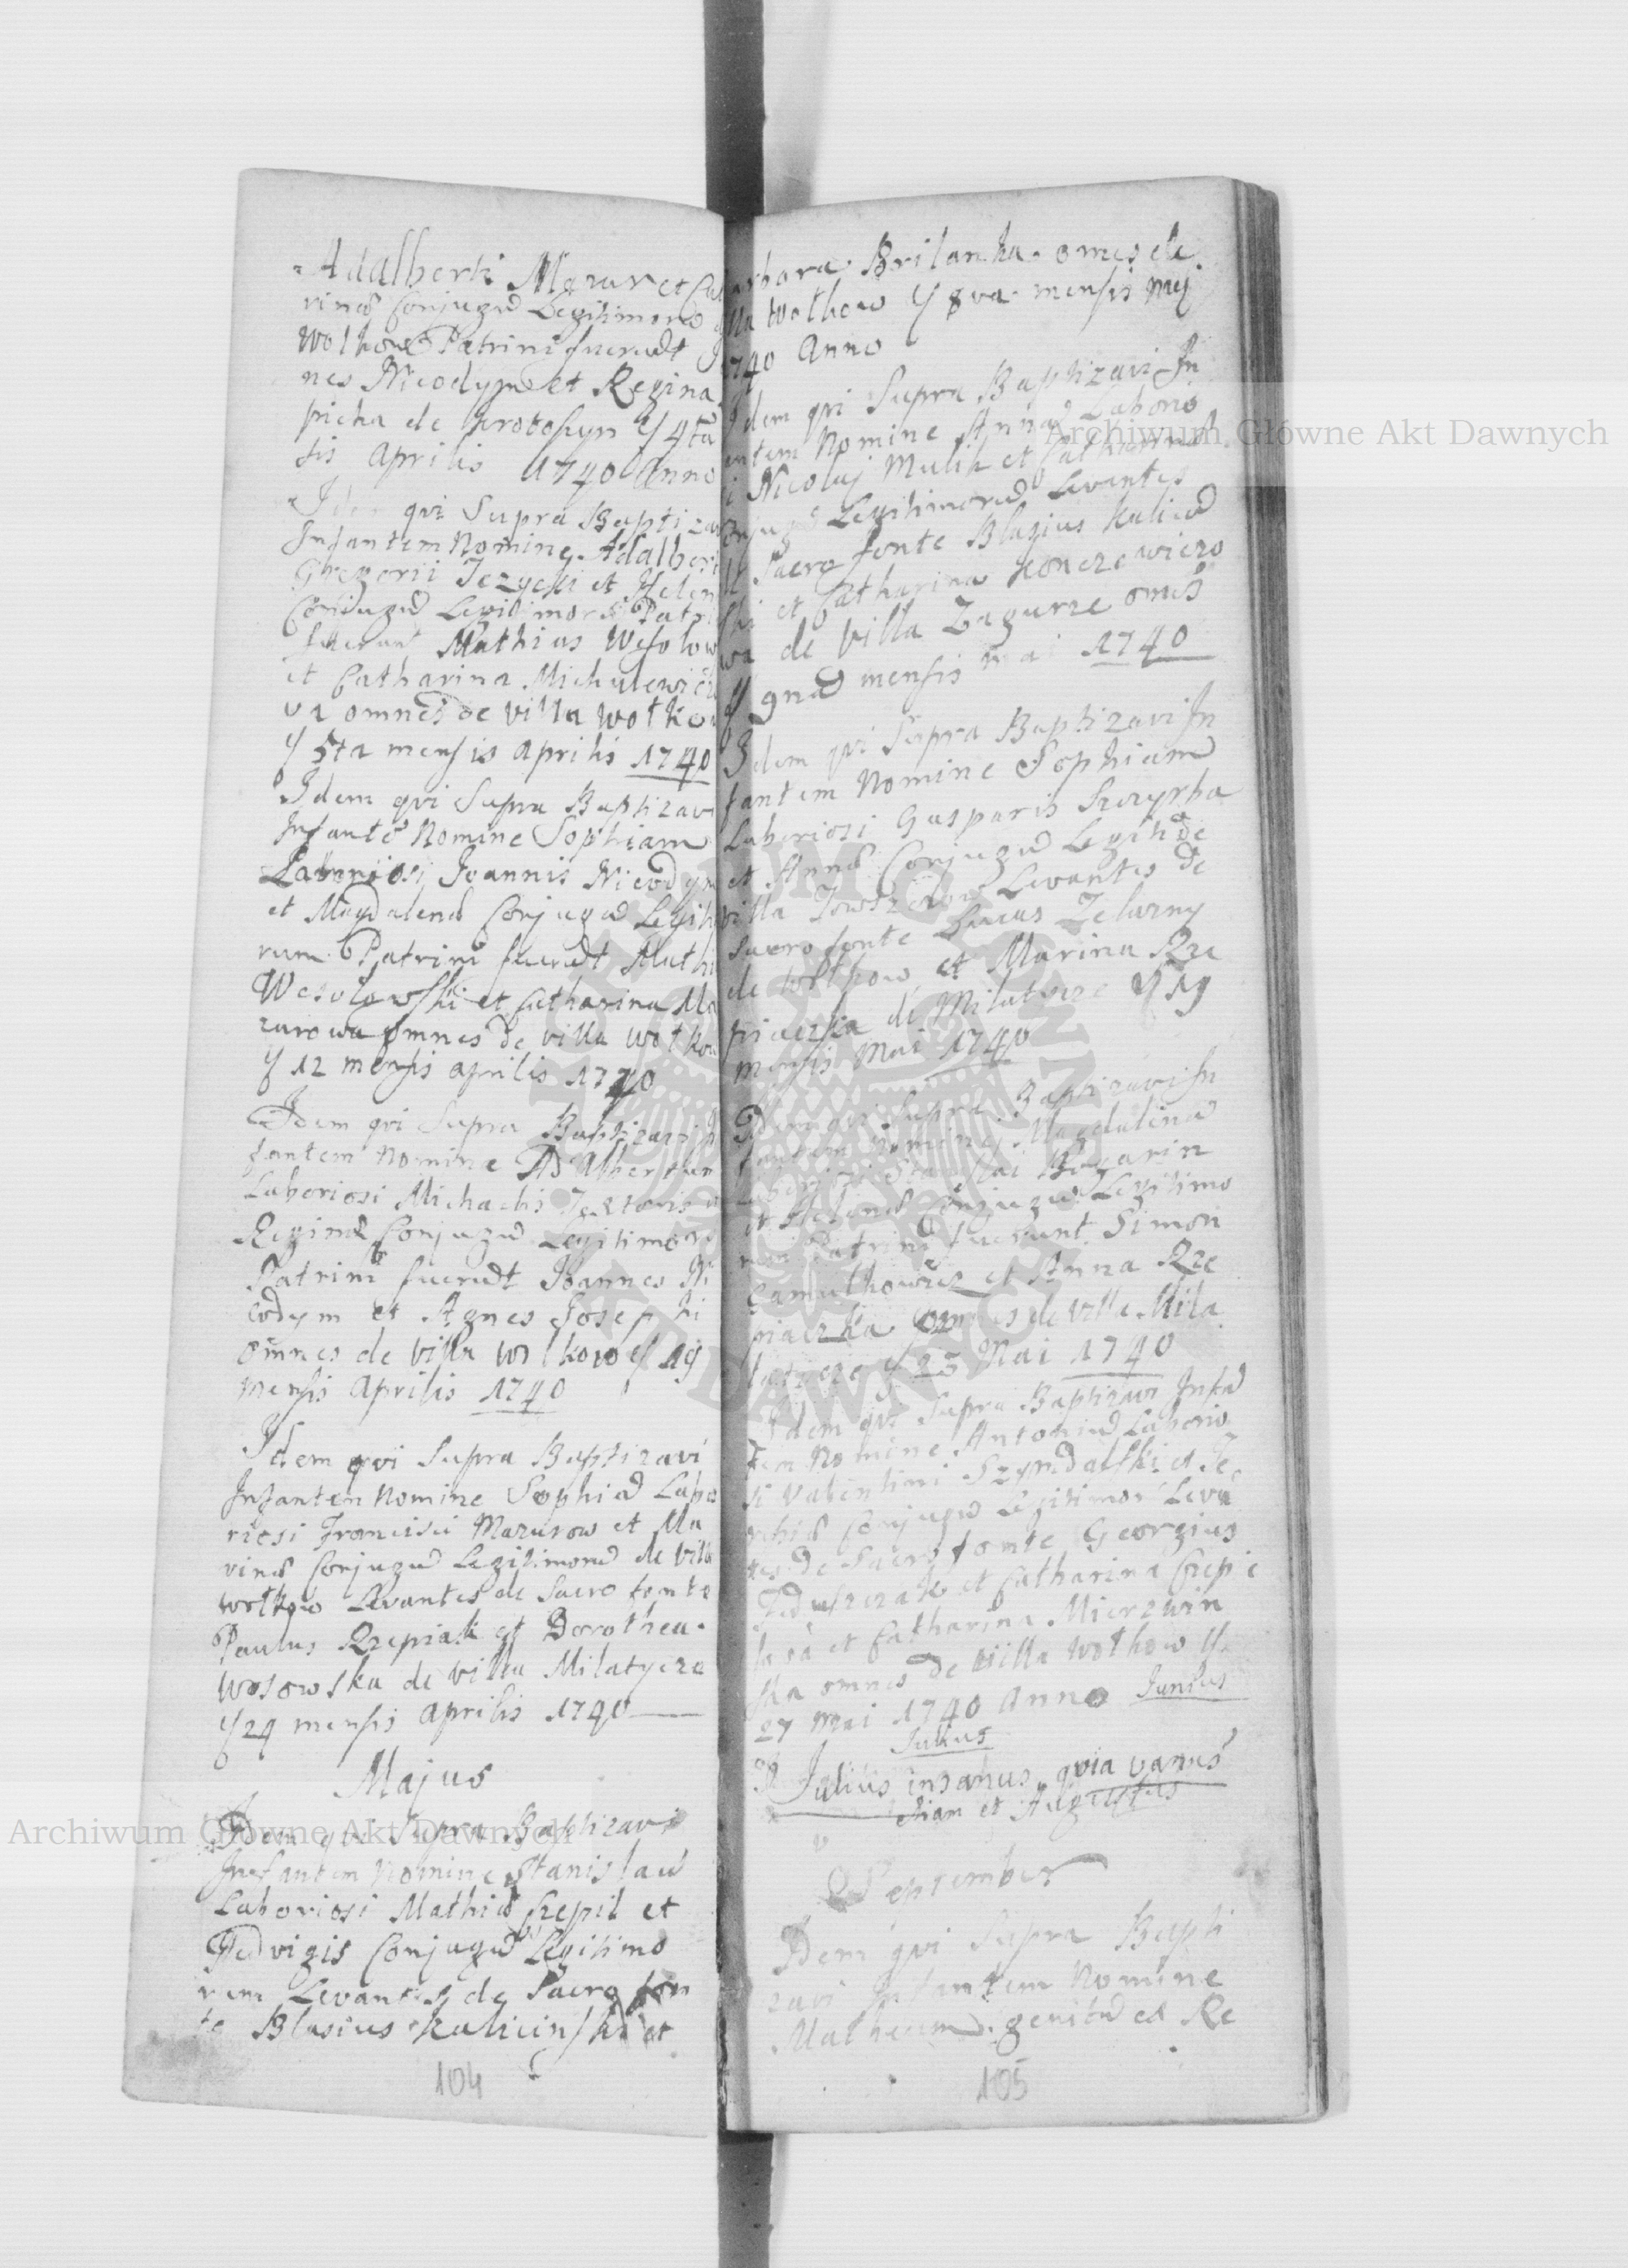 Adalberti Mazur et Cat
rinæ Conjugū Legitimoro
Wolkow Patrini fuerūt
nes Nicodym et Regina
picha de Krotoszyn ɏ 4ta
sis Aprilis 1740 Anno
Idem qvi Supra Baptizav
Infantem Nomine Adalber
Gregorii Jezycki et Helen
Conjugū Legitimor Patri
fuerunt Mathias Wesolow
et Catharina Michulewic
va omnes de villa Wolkow
ɏ 5ta mensis Aprilis 1740
Idem qvi Supra Baptizav
Infantē Nomine Sophiam
Laboriosi Joannis Nicodym
et Magdalenæ Conjugū Legiti
rum Patrini fuerūt Math
Wesolowski et Catharina Ma
zurowa omnes de villa Wolkow
ɏ 12 mensis aprilis 1740
Idem qvi Supra Baptizavi I
fantem Nomine Adalbertum
Laboriosi Michaelis Textoris
Reginæ Conjugū Legitimor
Patrini fuerūt Joannes Ni
codym et Agnes Josephi
omnes de villa Wolkow ɏ 19
mensis Aprilis 1740
Idem qvi Supra Baptizavi
Infantem Nomine Sophiā Labo
riosi Francisci Mazurow et Ma
rinæ Conjugū Legitimorū de villa
Wolkow Levantes de Sacro fonte
Paulus Rzepiak et Dorothea
Wosowska de villa Milatycze
ɏ 24 mensis Aprilis 1740
Majus
Idem qvi Supra Baptizavi
Infantem Nomine Stanislaū
Laboriosi Mathiæ Czepil et
Hedvigis Conjugū Legitimo
rum Levantes de Sacro fon
te Blasius Kalicinski et
104
arbara Brilanka omes de
lla Wolkow ɏ 8va mensis Maj
1740 Anno
Idem qvi Supra Baptizavi In
antem Nomine Annā Laborio
i Nicolaj Mulik et Catharinæ
onjugū Legitimorū Levantes
Sacro fonte Blazius Kalicīn
ski et Catharina Konczewiczo
wa de Villa Zagurze omēs
ɏ 9nā mensis Mai 1740
Idem qvi Supra Baptizavi In
fantem Nomine Sophiam
Laboriosi Gasparis Szczyrba
et Annæ Conjugū Legit de
villa Levantes de
Sacro fonte Lucas Zelazny
de Wolkow et Marina Rze
piaczka de Milatycze ɏ 19
mensis Mai 1740
Idem qvi Supra Baptizavi In
fantem Nomine Magdalenā
Laboriosi Stanislai
et Helenæ Conjugū Legitimo
rum Patrini fuerunt Simon
et Anna Rze
piaczka omnes de villa Mila
tycze ɏ 23 Mai 1740
Idem qvi Supra Baptizavi Infā
tem Nomine Antoniū Laborio
si Valentini Szymdalski et Te
Conjugū Legitimor Levā
tes de Sacro fonte Georgius
et Catharina Czepie
lora et Catharina Mierzwin
ska omnes de villa Wolkow
27 Mai 1740 Anno Junius
Julius
Julius insanus qvia vanus
etiam et Augustus
September
Idem qvi Supra Bapti
zavi Infantem Nomine
Matheum genitū ex Re
105
Archiwum Główne Akt Dawnych
Archiwum Główne Akt Dawnych